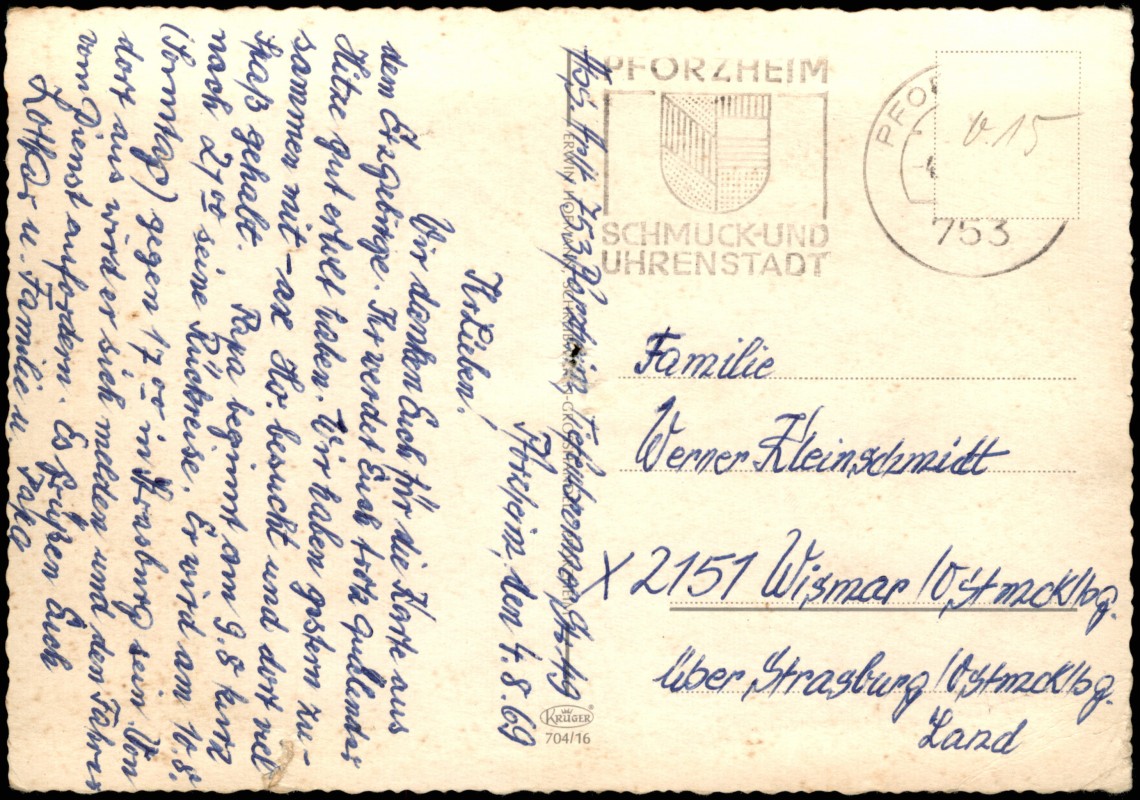 Pforzheim, den 4.8.69
Ihr Lieben.
Wir danken Euch für die Karte aus
dem Erzgebirge. Ihr werdet Euch trotz quälender
Hitze gut erholt haben. Wir haben gestern zu-
sammen mit Hor. besucht und dort viel
Spaß gehabt. Papa beginnt am 9.8 kurz
nach 21 00 seine Rückreise. Er wird am 10.8.
(Sonntag) gegen 17 00 in Strasburg sein. Von
dort aus wird er sich melden und den Fahrer
vom Dienst anfordern. Es grüßen Euch
Lothar u. Familie u. Papa
Abs. 753 Pforzheim
ERWIN
KRÜGER
704/16
PFORZHEIM
SCHMUCK-UND
UHRENSTADT
PFO
753
0.15
Familie
Werner Kleinschmidt
X 2151 Wismar /Ostmcklbg.
über Strasburg /Ostmcklbg.
Land